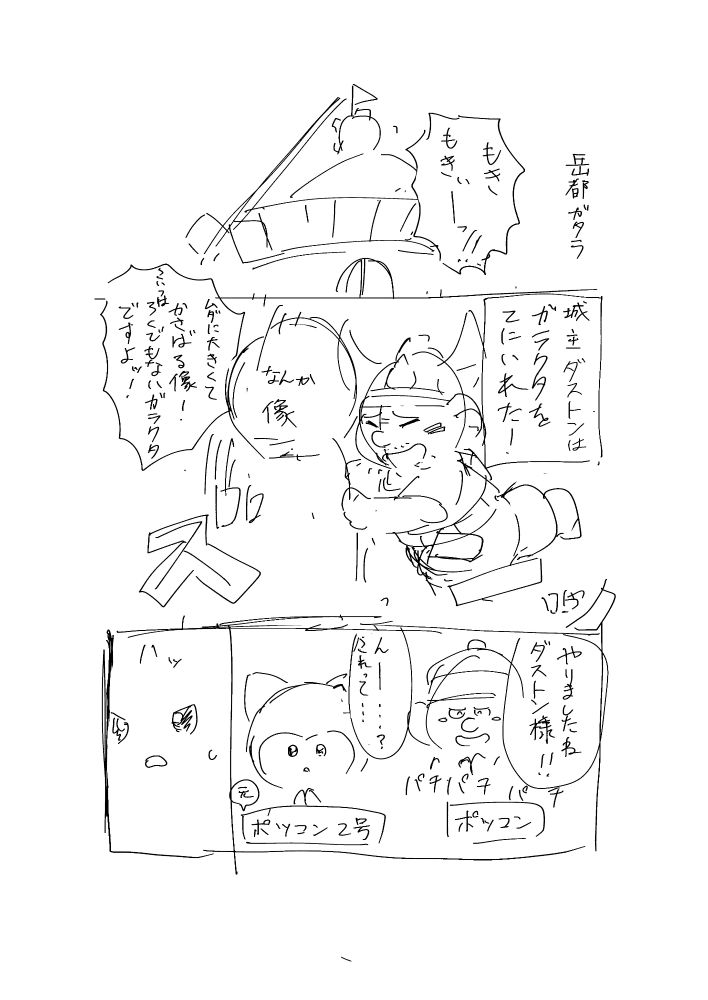 岳都ガタラ
もき
もきぃーっ
城主ダストンは
ガラクタを
てにいれた！
ムダに大きくて
かさばる像！
こいつは
ろくでもないガラクタ
ですよッ！
なんか
像
ズ
やりましたね
ダストン様！！
パチパチ
パチ
ポツコン
んー…？
これって…
元
ポツコン2号
ハッ